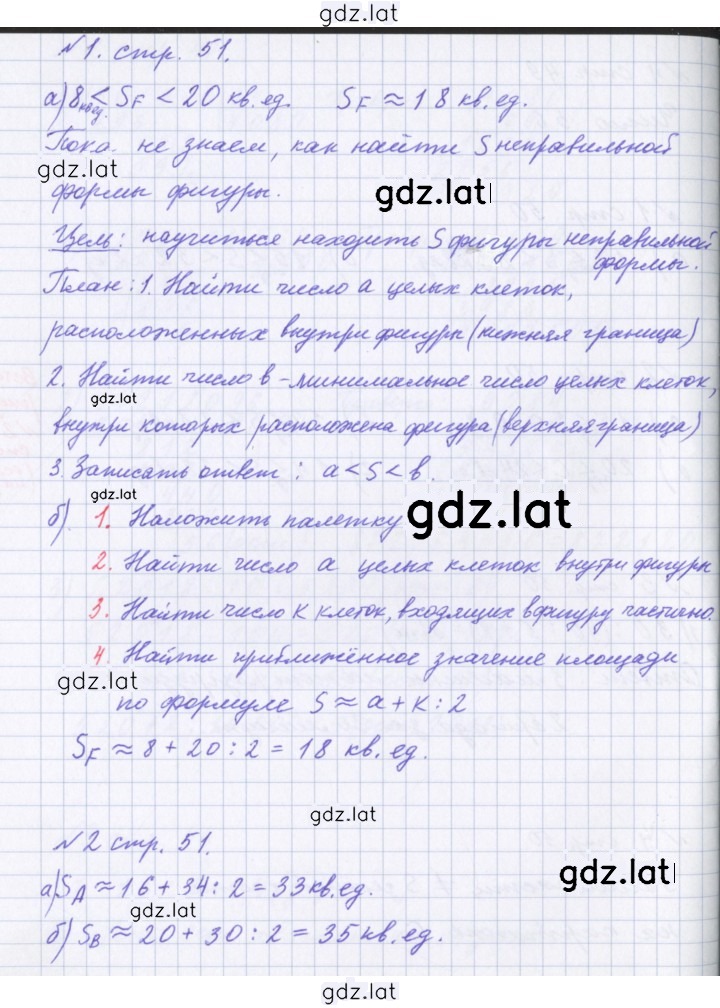 gdz.lat
№1. стр. 51.
а) 8 кв.ед. < S_F < 20 кв.ед. S_F ≈ 18 кв.ед.
Пока не знаем, как найти S неправильной
gdz.lat
формы фигуры.
gdz.lat
Цель: научиться находить S фигуры неправильной
формы.
План: 1. Найти число а целых клеток,
расположенных внутри фигуры (нижняя граница)
2. Найти число в - минимальное число целых клеток,
gdz.lat
внутри которых расположена фигура (верхняя граница)
3. Записать ответ: а < S < в.
gdz.lat
б) 1. Наложить палетку
gdz.lat
2. Найти число а целых клеток внутри фигуры
3. Найти число К клеток, входящих в фигуру частично.
4. Найти приближённое значение площади
gdz.lat
по формуле S ≈ а + К : 2
S_F ≈ 8 + 20 : 2 = 18 кв.ед.
gdz.lat
№2 стр. 51.
gdz.lat
а) S_A ≈ 16 + 34 : 2 = 33 кв.ед.
gdz.lat
б) S_B ≈ 20 + 30 : 2 = 35 кв.ед.
gdz.lat